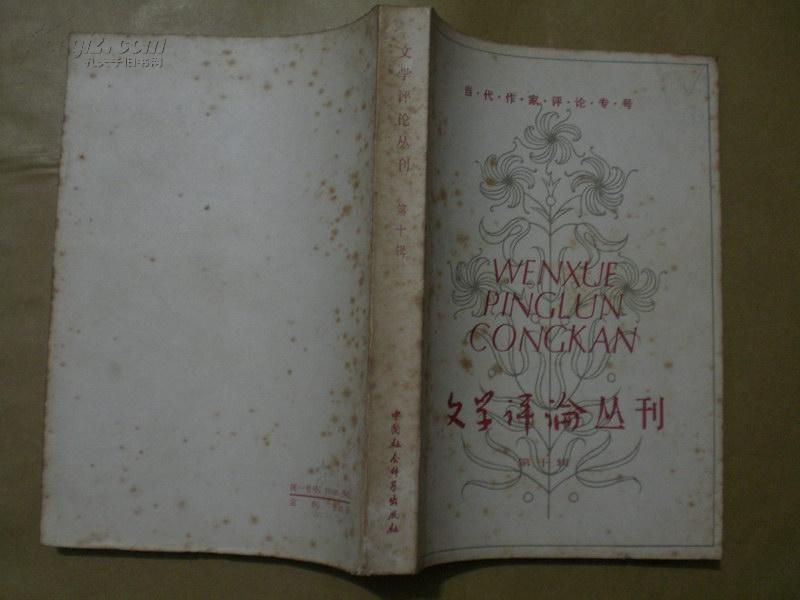 孔夫子旧书网
文学评论丛刊 第十辑
中国社会科学出版社
当·代·作·家·评·论·专·号
WENXUE
PINGLUN
CONGKAN
文学评论丛刊
第十辑